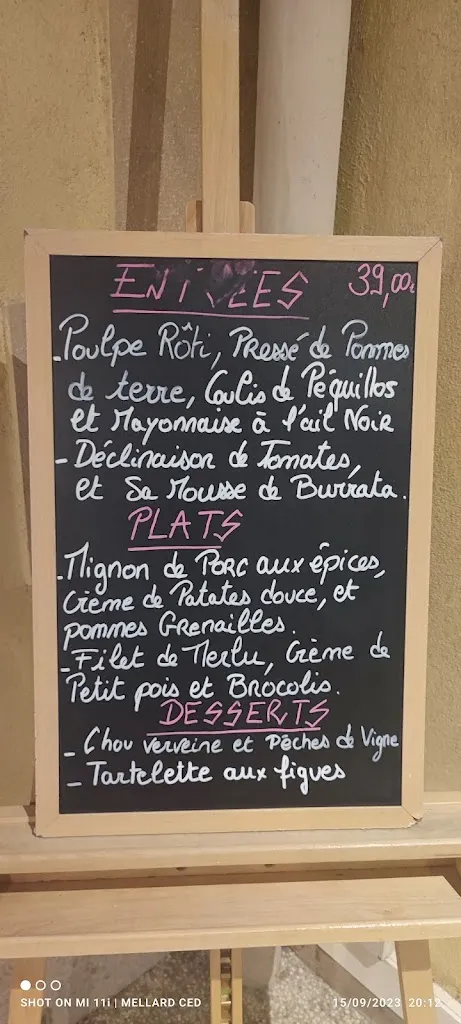 ENTRÉES 39,00€
-Poulpe Rôti, Pressé de Pommes
de terre, Coulis de Péquillos
et Mayonnaise à l'ail Noir
- Déclinaison de Tomates,
et Sa Mousse de Burrata.
PLATS
-Mignon de Porc aux épices,
Crème de Patates douce, et
pommes Grenailles.
-Filet de Merlu, Crème de
Petit pois et Brocolis.
DESSERTS
- Chou verveine et Pêches de Vigne
- Tartelette aux figues
SHOT ON MI 11i | MELLARD CED 15/09/2023 20:12